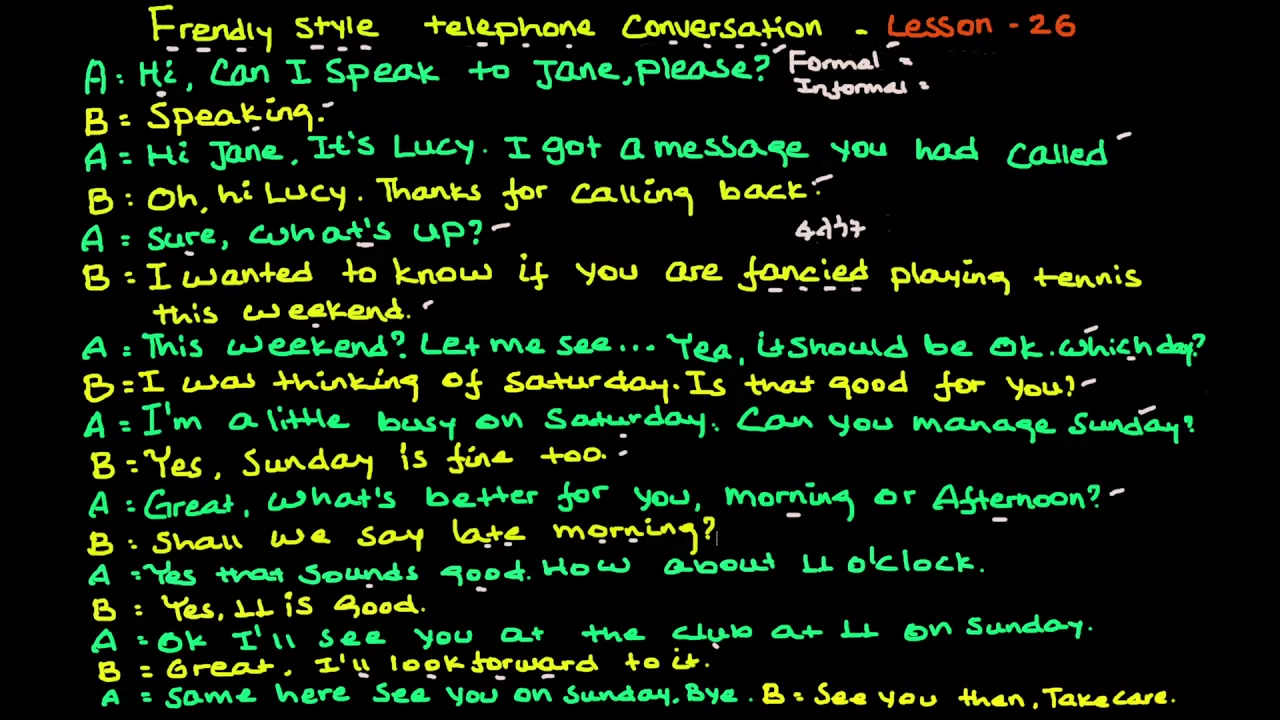 Frendly style telephone Conversation - Lesson - 26
A: Hi, Can I Speak to Jane, please? Formal =
Informal =
B = Speaking.
A = Hi Jane, It's Lucy. I got a message you had called
B: Oh, hi Lucy. Thanks for calling back.
A = Sure, what's up?
B = I wanted to know if you are fancied playing tennis
this weekend.
A = This weekend? Let me see... Yea, it should be ok. which day?
B = I was thinking of saturday. Is that good for you?
A = I'm a little busy on Saturday. Can you manage sunday?
B = Yes, Sunday is fine too.
A = Great, what's better for you, morning or Afternoon?
B: Shall we say late morning?
A = Yes that sounds good. How about 11 o'clock.
B: Yes, 11 is good.
A = Ok I'll see you at the club at 11 on sunday.
B = Great, I'll look forward to it.
A = Same here see you on sunday. Bye. B = See you then, Take care.